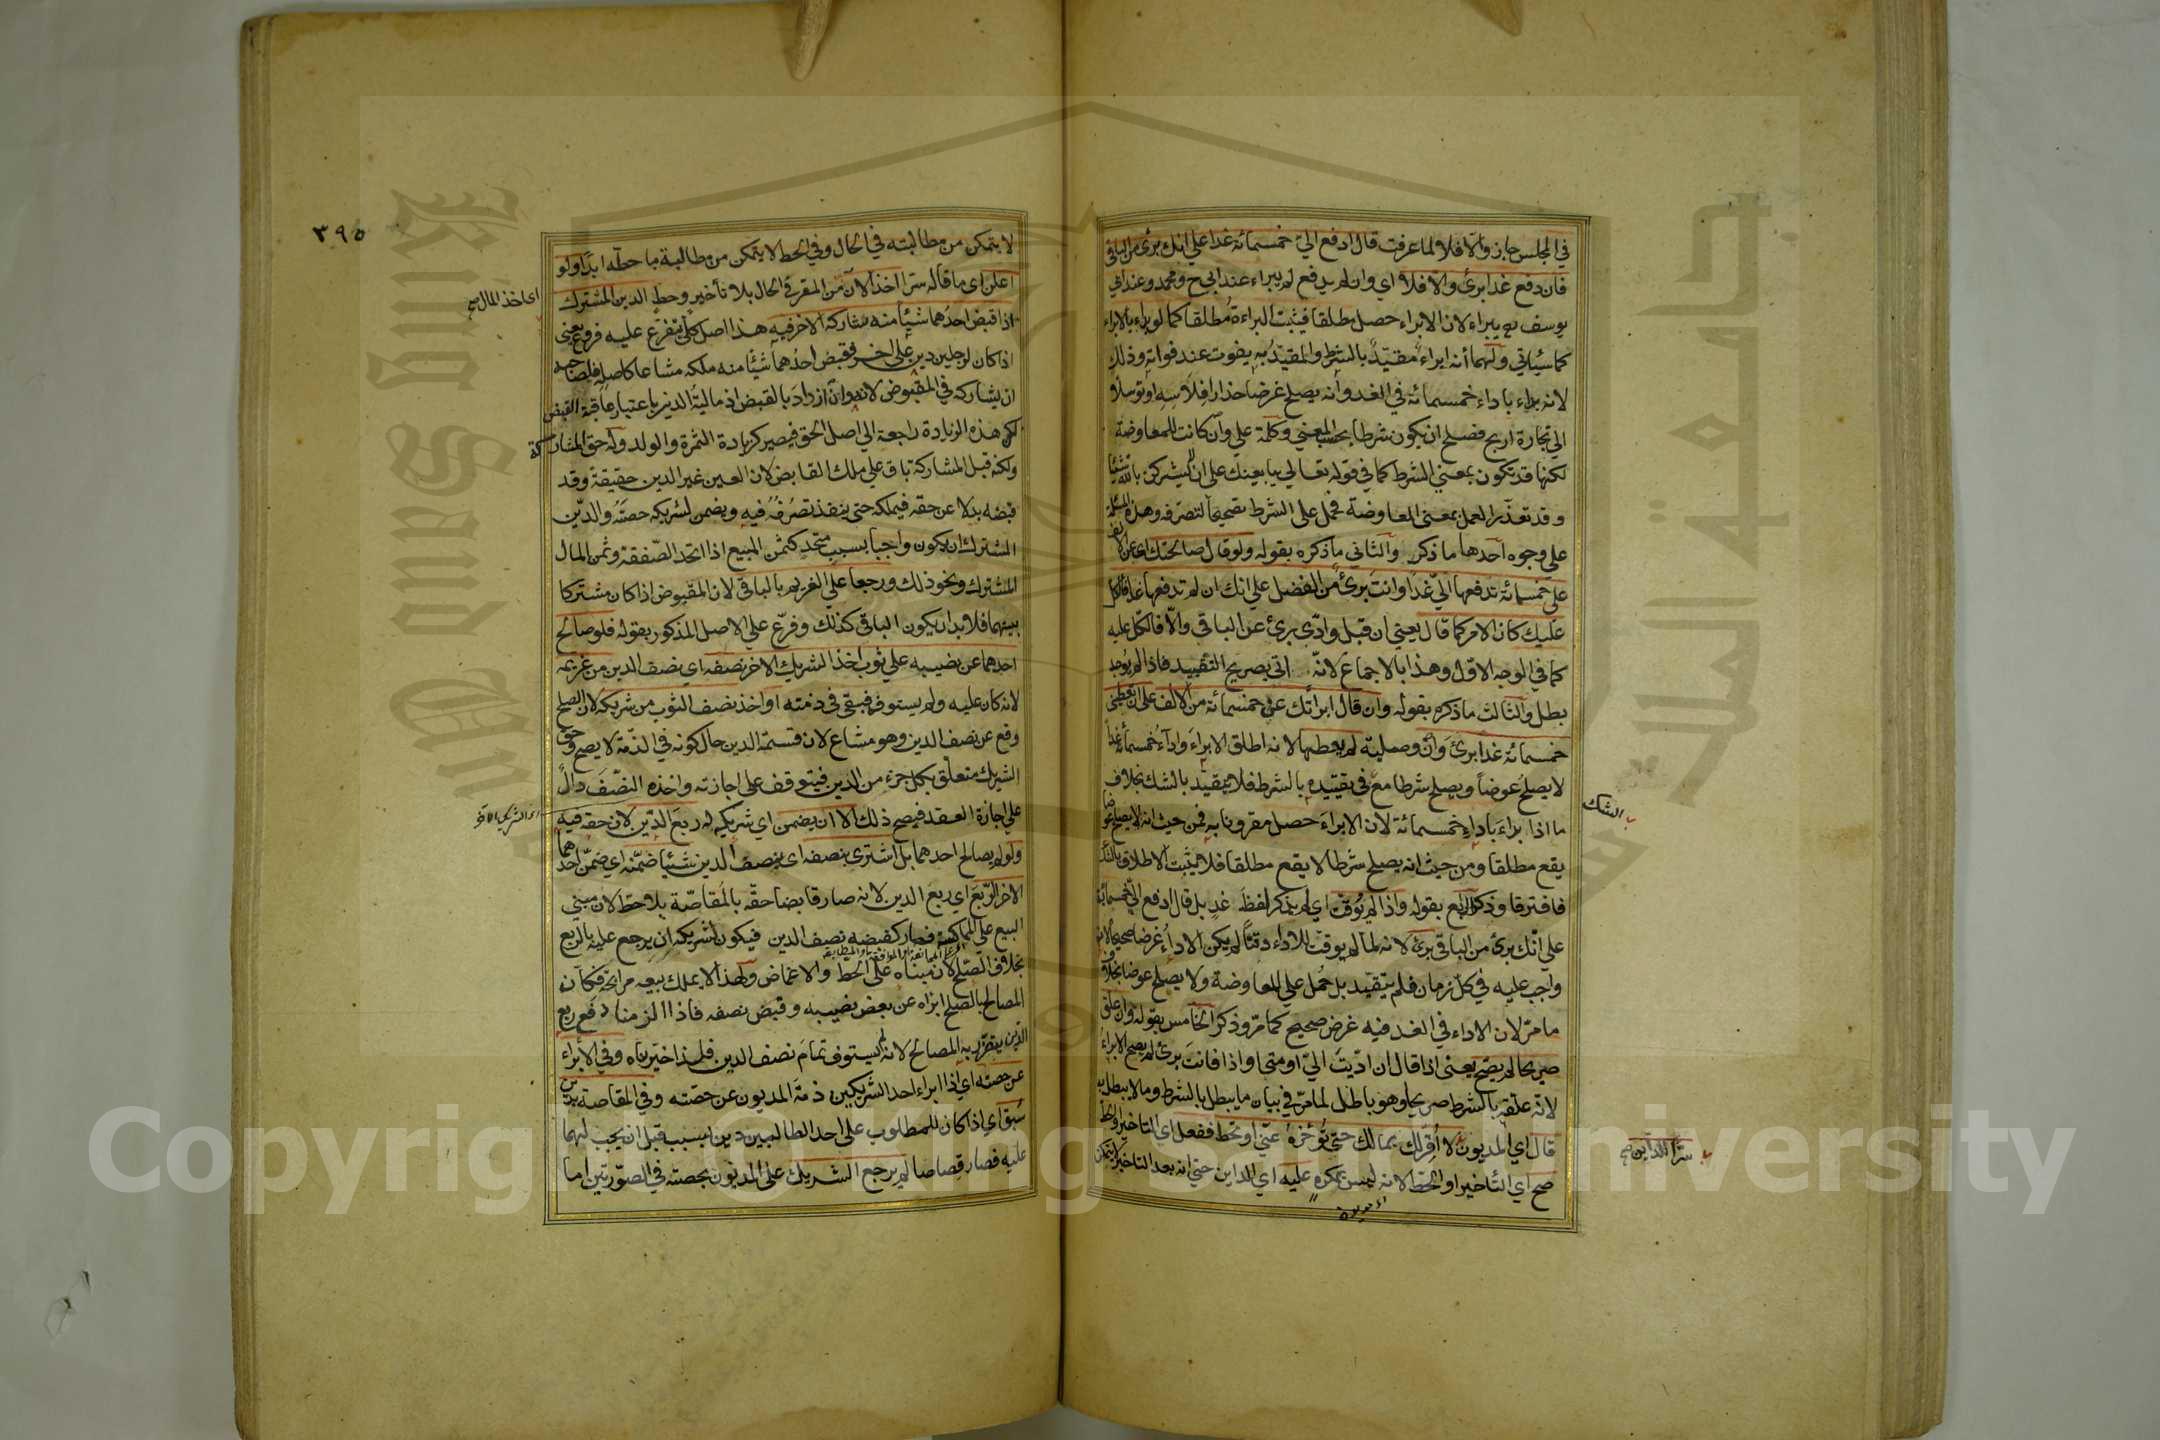 في المجلس جاز والا فلا ولما عرفت قال ادفع الي خمسمائة غدا على انك برئ من الباقي
فان دفع غدا برئ والا فلا اي وان لم يدفع لم يبراء عند ابي ح ومحمد وعند ابي
يوسف يبراء لان الابراء حصل مطلقا فيثبت البراءة مطلقا كما لو بداء بالابراء
كما سيأتي ولهما أنه ابراء مقيد بالشرط والمقيد به يفوت عند فواته وذلك
لانه بداء باداء خمسمائة في الغد وأنه يصلح غرضا حذار افلاسه او توسلا
الى تجارة اربح فصلح ان يكون شرطا بحسب المعنى وكلمة على وان كانت للمعاوضة
لكنها قد تكون بمعنى الشرط كما في قوله تعالى يبايعنك على ان لا يشركن بالله شيئا
وقد تعذر العمل بمعنى المعاوضة فحمل على الشرط تصحيحا لتصرفه وهذه المسئلة
على وجوه احدها ما ذكر والثاني ما ذكره بقوله ولو قال صالحتك اي عن الالف
على خمسمائة تدفعها الي غدا وانت برئ من الفضل على انك ان لم تدفعها غدا فالكل
عليك كان الامر كما قال يعني ان قبل وادى برئ عن الباقي والا فالكل عليه
كما في الوجه الاول وهذا بالاجماع لانه اتى بصريح التقييد فاذا لم يوجد
بطل والثالث ما ذكره بقوله وان قال ابرأتك عن خمسمائة من الالف على ان تعطيني
خمسمائة غدا برئ وان وصلية لم يعطها لانه اطلق الابراء واداء خمسمائة غدا
لا يصلح عوضا ويصلح شرطا مع في تقييده بالشرط فلا يتقيد بالشك بخلاف
ما اذا بداء باداء خمسمائة لان الابراء حصل مقرونا به فمن حيث انه لا يصلح عوضا
يقع مطلقا ومن حيث انه يصلح شرطا لا يقع مطلقا فلا يثبت الاطلاق بالشك
فافترقا وذكر الرابع بقوله واذا لم يوقت اي لم يذكر لفظ غد بل قال ادفع الي خمسمائة
على انك برئ من الباقي برئ لانه لما لم يوقت للاداء وقتا لم يكن الاداء غرضا صحيحا لانه
واجب عليه في كل زمان فلم يتقيد بل حمل على المعاوضة ولا يصلح عوضا بخلاف
ما مر لان الاداء في الغد فيه غرض صحيح كما مر وذكر الخامس بقوله وان علق
صريحا لم يصح يعني اذا قال ان اديت الي او متى او اذا فانت برئ لم يصح الابراء
لانه علقه بالشرط صريحا وهو باطل لما مر في بيان ما يبطل بالشرط وما لا يبطل به
قال اي المديون لا أقر لك بمالك حتى تؤخره عني او تحط ففعل اي التاخير والحط
صح اي التأخير او الحط لانه ليس بمكره عليه اي الداين حتى انه بعد التاخير لا يتمكن
اي مديون
الشك
سرا للداين صح
٣٩٥
لا يتمكن من مطالبته في الحال وفي الحط لا يتمكن من مطالبة ما حطه ابدا ولو
اعلن اي ما قاله سرا اخذ الآن من المقر في الحال بلا تأخير وحط الدين المشترك
اذا قبض احدهما شيئا منه شاركه الاخر فيه هذا اصل كلي يتفرع عليه فروع يعني
اذا كان لرجلين دين على اخر فقبض احدهما شيئا منه ملكه مشاعا كاصله فلصاحبه
ان يشاركه في المقبوض لانه وان ازداد بالقبض اذ مالية الدين باعتبار عاقبة القبض
لكن هذه الزيادة راجعة الى اصل الحق فيصير كزيادة الثمرة والولد وله حق المشاركة
ولكنه قبل المشاركة باق على ملك القابض لان العين غير الدين حقيقة وقد
قبضه بدلا عن حقه فيملكه حتى ينفذ تصرفه فيه ويضمن لشريكه حصته والدين
المشترك ان يكون واجبا بسبب متحد كثمن المبيع اذا اتحد الصفقة وثمن المال
المشترك ونحو ذلك ورجعا على الغريم بالباقي لان المقبوض اذا كان مشتركا
بينهما فلا بد ان يكون الباقي كذلك وفرع على الاصل المذكور بقوله فلو صالح
احدهما عن نصيبه على ثوب اخذ الشريك الاخر نصفه اي نصف الدين من غريمه
لانه كان عليه ولم يستوف فبقي في ذمته او اخذ نصف الثوب من شريكه لان الصلح
وقع عن نصف الدين وهو مشاع لان قسمة الدين حال كونه في الذمة لا يصح وحق
الشريك متعلق بكل جزء من الدين فيتوقف على اجازته واخذه النصف دال
على اجازة العقد فيصح ذلك الا ان يضمن اي شريكه له ربع الدين لان حقه فيه
ولو لم يصالح احدهما بل اشترى بنصفه اي بنصف الدين شيئا ضمنه اي ضمن احدهما
الاخر الربع اي ربع الدين لانه صار قابضا حقه بالمقاصة بلا حط لان مبنى
البيع على المماكسة فصار كقبضه نصف الدين فيكون لشريكه ان يرجع عليه بالربع
بخلاف الصلح لان مبناه على الحط والاغماض ولهذا لا يملك بيعه مرابحة فكأن
المصالح بالصلح ابراه عن بعض نصيبه وقبض نصفه فاذا الزمنا دفع ربع
الدين يتضرر به المصالح لانه لم يستوف تمام نصف الدين فلهذا خيرناه وفي الابراء
عن حصته اي اذا ابراء احد الشريكين ذمة المديون عن حصته وفي المقاصة بدين
سبق اي اذا كان للمطلوب على احد الطالبين دين بسبب قبل ان يجب لهما
عليه فصار قصاصا لم يرجع الشريك على المديون بحصته في الصورتين اما
اي اخذ المال صح
اي الشريك الاخر
King Saud University
جامعة الملك سعود
Copyright © King Saud University